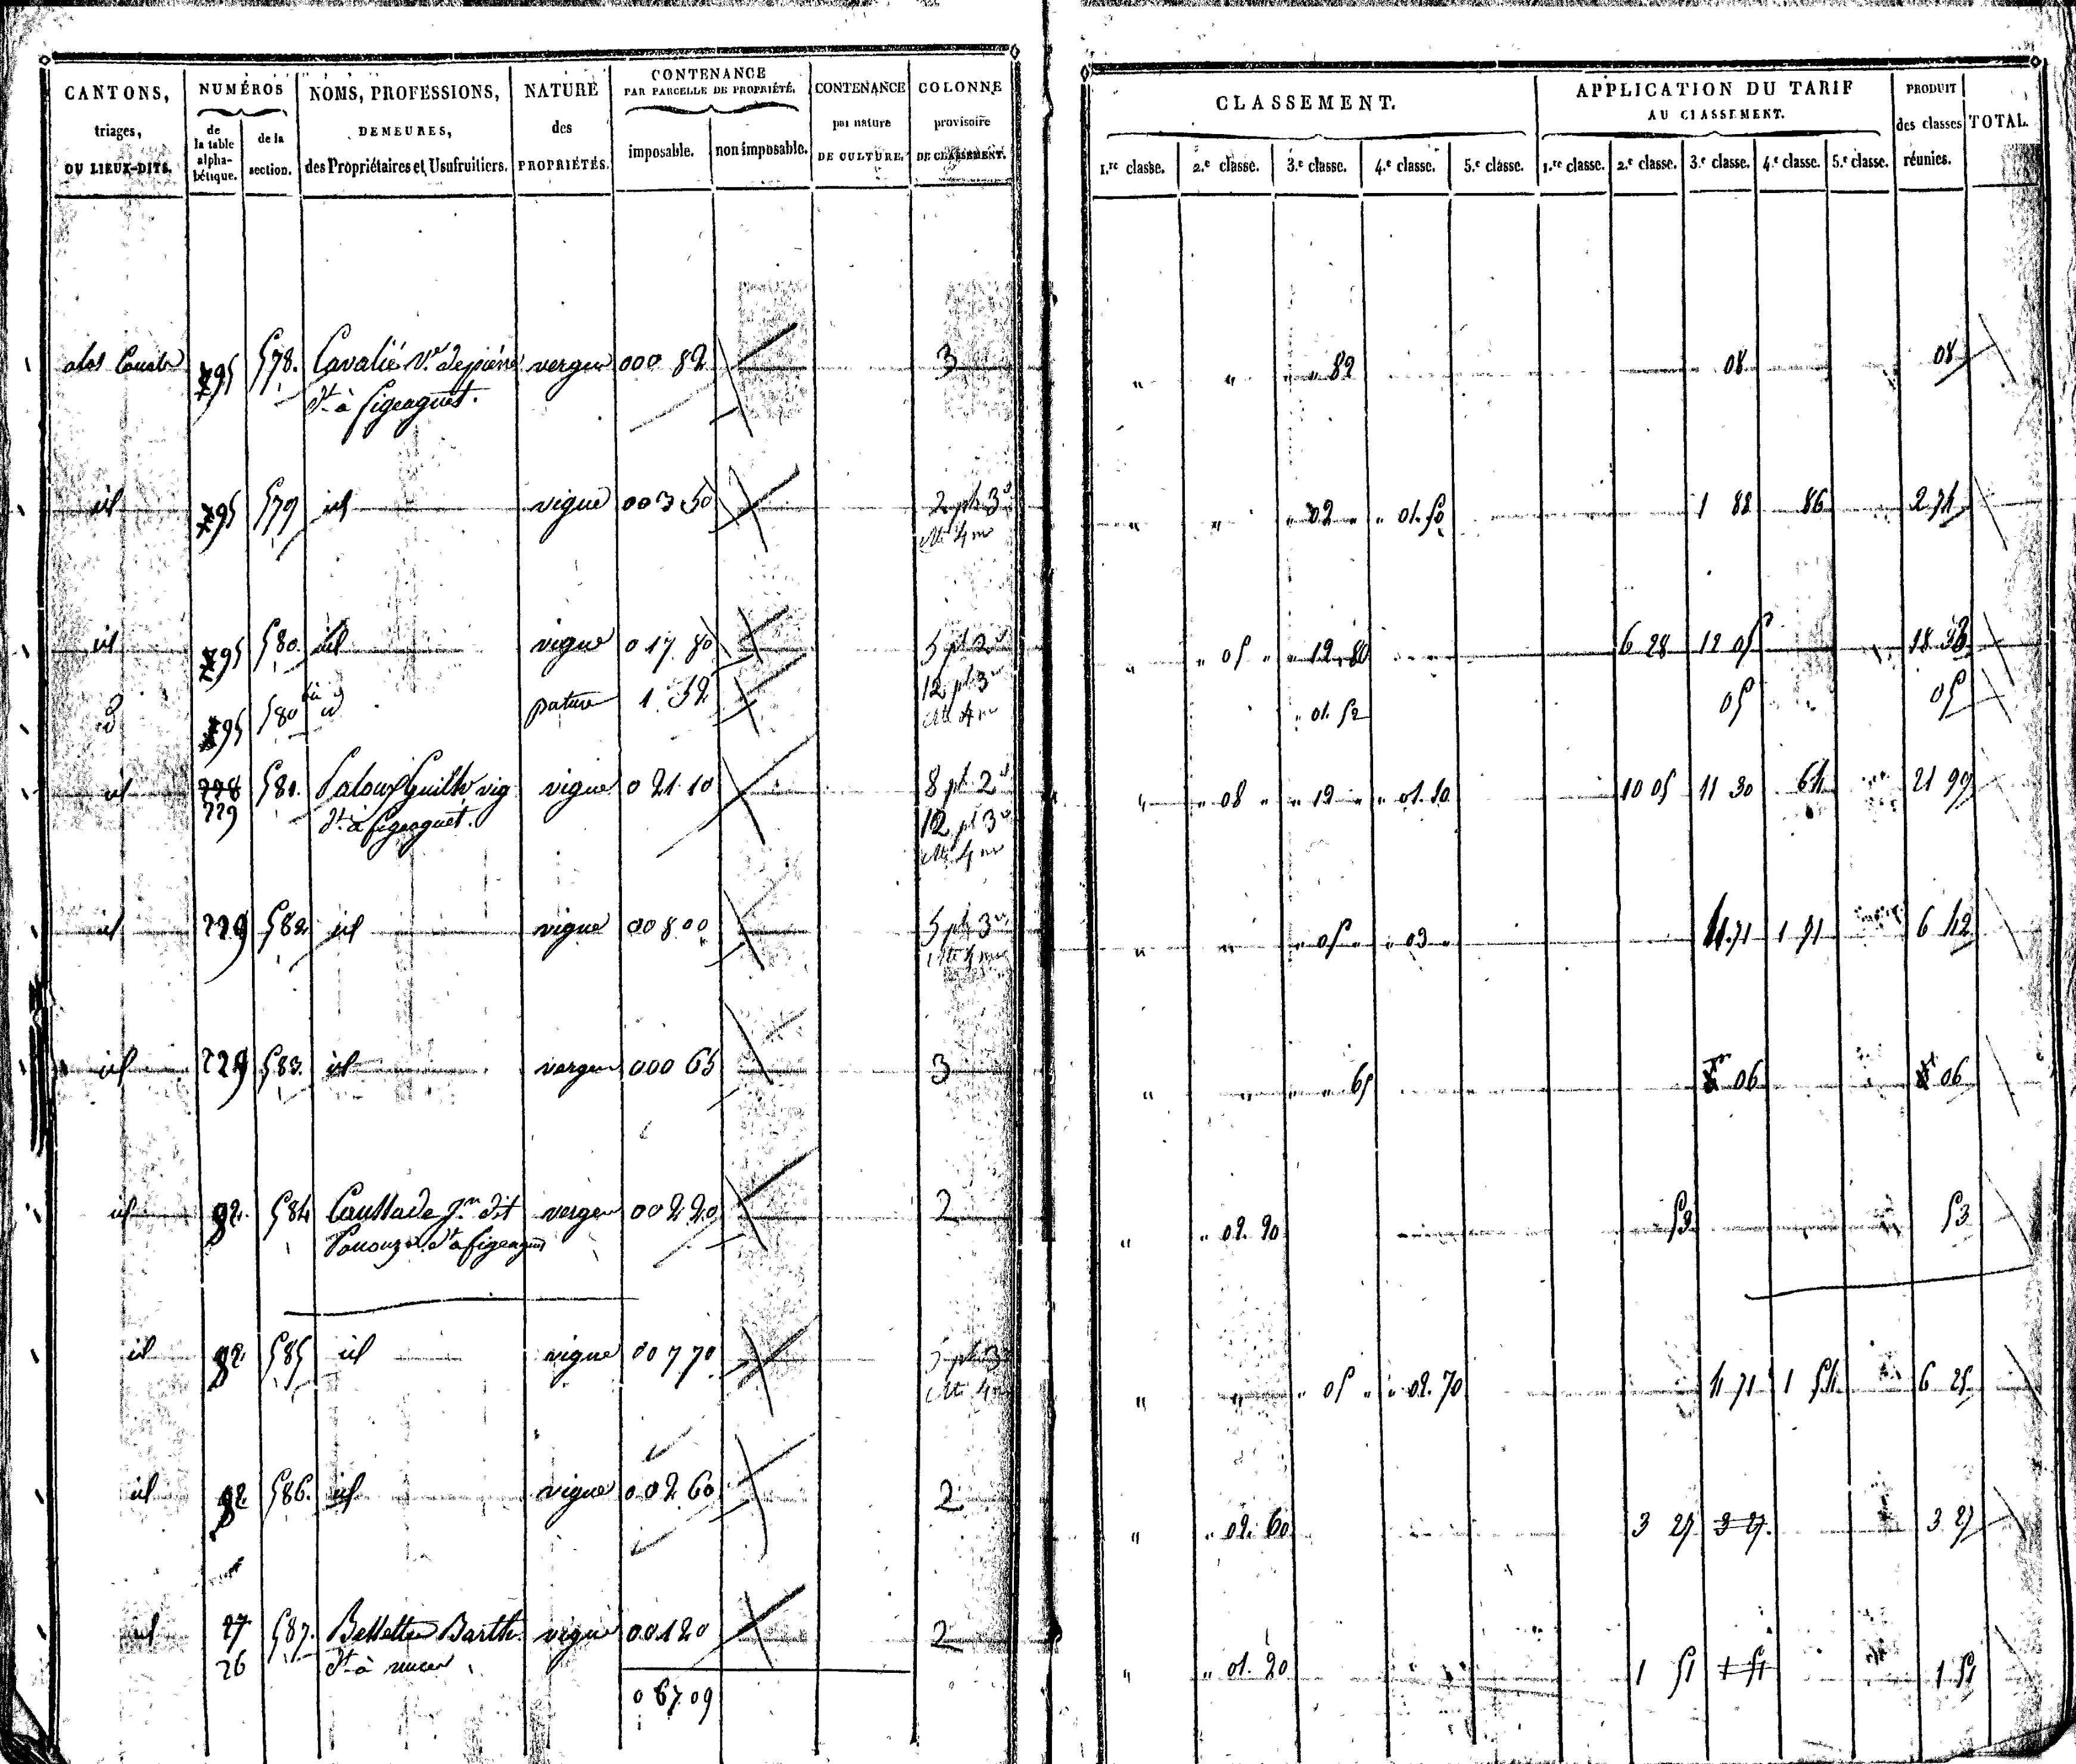 CANTONS, triages, OU LIEUX-DITS.
NUMÉROS
de la table alpha-bétique.
de la section.
NOMS, PROFESSIONS, DEMEURES, des Propriétaires et Usufruitiers.
NATURE des PROPRIÉTÉS.
CONTENANCE PAR PARCELLE DE PROPRIÉTÉ,
imposable.
non imposable.
CONTENANCE par nature DE CULTURE.
COLONNE provisoire DE CLASSEMENT.
CLASSEMENT.
1.re classe. 2.e classe. 3.e classe. 4.e classe. 5.e classe.
APPLICATION DU TARIF AU CLASSEMENT.
1.re classe. 2.e classe. 3.e classe. 4.e classe. 5.e classe.
PRODUIT des classes réunies.
TOTAL.
95 578. Cavalié V.e de pierre verger 000 82 3 " " " " 82 08 08
dt à figeaguet.
id 95 579 id vigne 00 3 50 2 pt 3 " " " 02 " " 01. 50 1 88 86 2 74
id 95 580. id vigne 0 17 80 5 pt 2 " " 05 " " 12. 80 6 28 12 05 18 33
12 pt 3
id 95 580 bis id pature 1 52 " 01. 52 05 05
id 228 581. guilh vig vigne 0 21 10 8 pt 2 " " 08 " " 12 " " 01. 10 10 05 11 30 64 21 99
229 dt à figeaguet. 12 pt 3
id 229 582 id vigne 00 8 00 5 pt 3 " " " 05 " " 03 " 4. 71 1 71 6 42
id 229 583. id verger 000 65 3 " " " " 65 06 06
id 82. 584 Caussade Jn dit verger 00 2 20 2 " " 02. 20 53 53
dt à figeaguet
id 82. 585 id vigne 00 7 70 5 pt 3 " " " 05 " " 02. 70 4 71 1 54 6 25
id 82 586. id vigne 0 02 60 2 " " 02. 60 3 27 3 27. 3 27
id 27 587. Barth. vigne 00 1 20 2 " " 01. 20 1 51 1 51 1 51
26 dt à
0 67 09